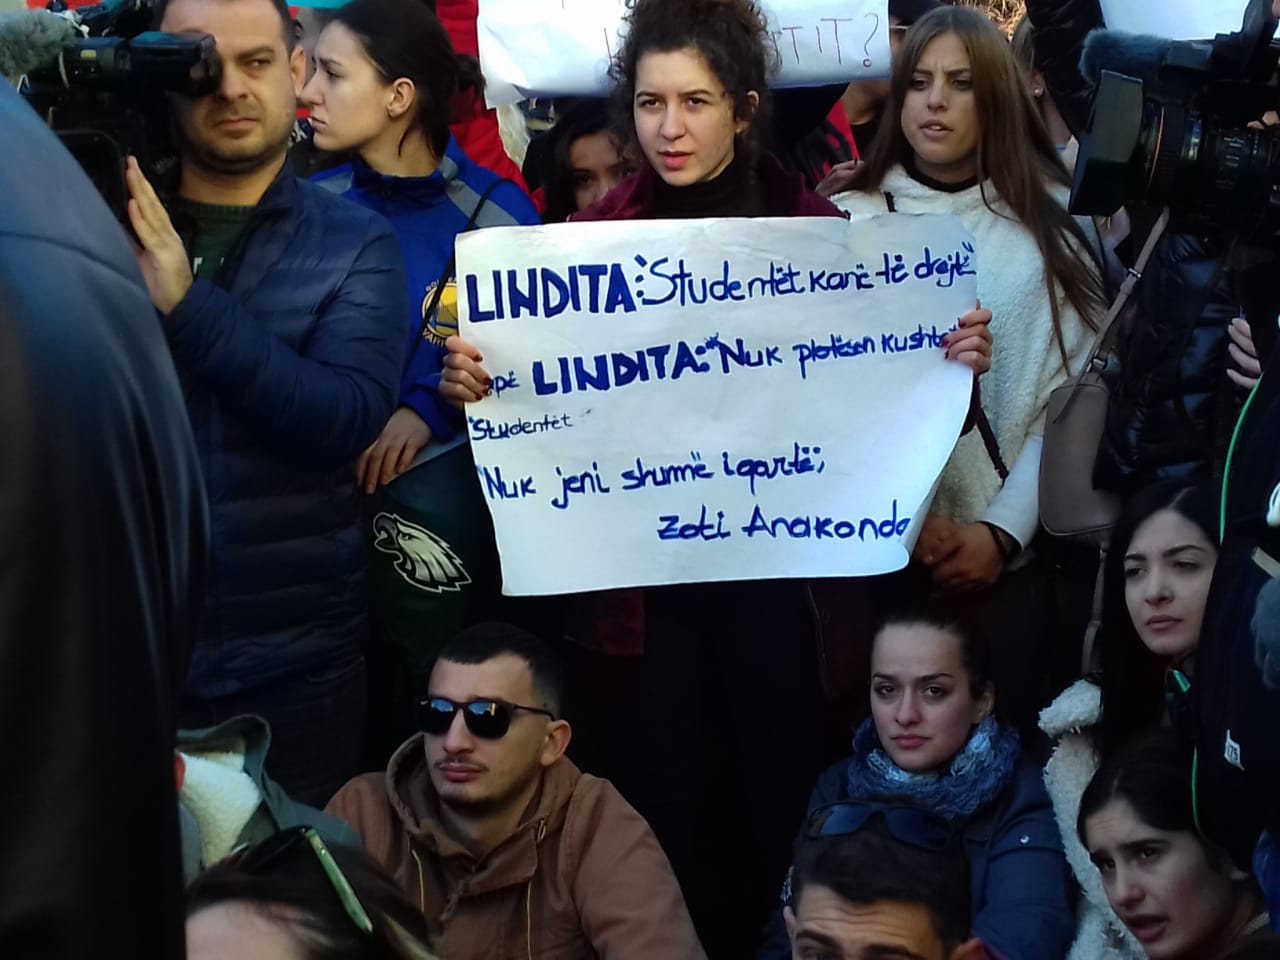 TIT?
LINDITA: "Studentët kanë të drejtë"
LINDITA: "Nuk plotësen kushtet
"Studentët
"Nuk jeni shumë i qartë;
Zoti Anakonda